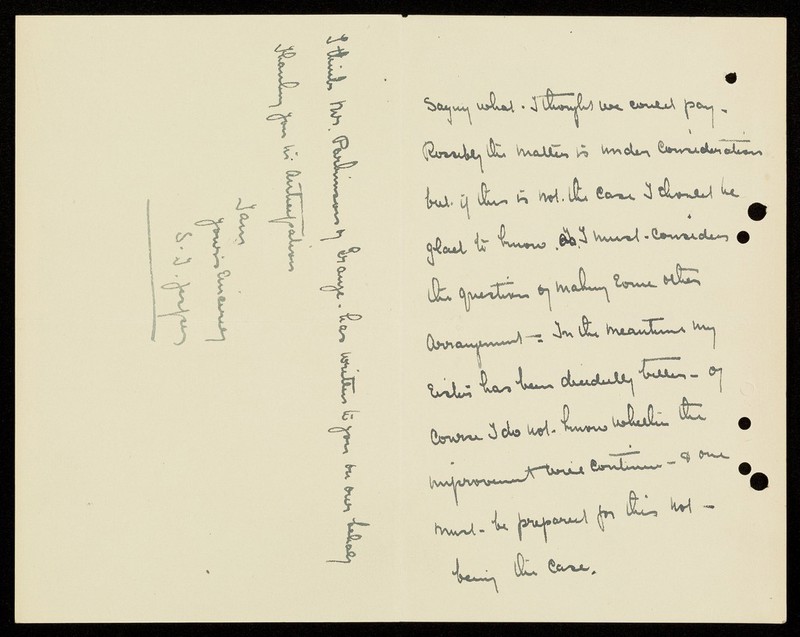 Saying what I thought we could pay.
Possibly the matter is under consideration
but if this is not the case I should be
glad to know. As I must consider
the question of making some other
arrangement - In the meantime my
sister has been decidedly better - of
course I do not know whether the
improvement will continue - & one
must be prepared for this not
being the case.
I think Mr. Parkinson of Grange has written to you on our behalf
Thanking you in anticipation
I am
Yours sincerely
S. J.